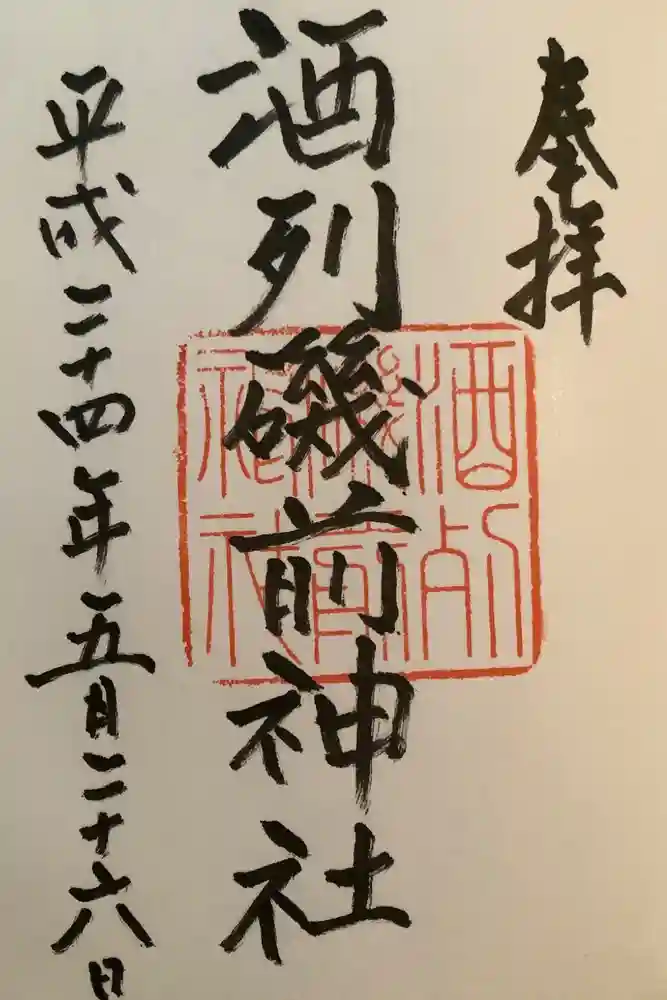 奉拝
酒列磯前神社
平成二十四年五月二十六日
酒列
磯前
神社